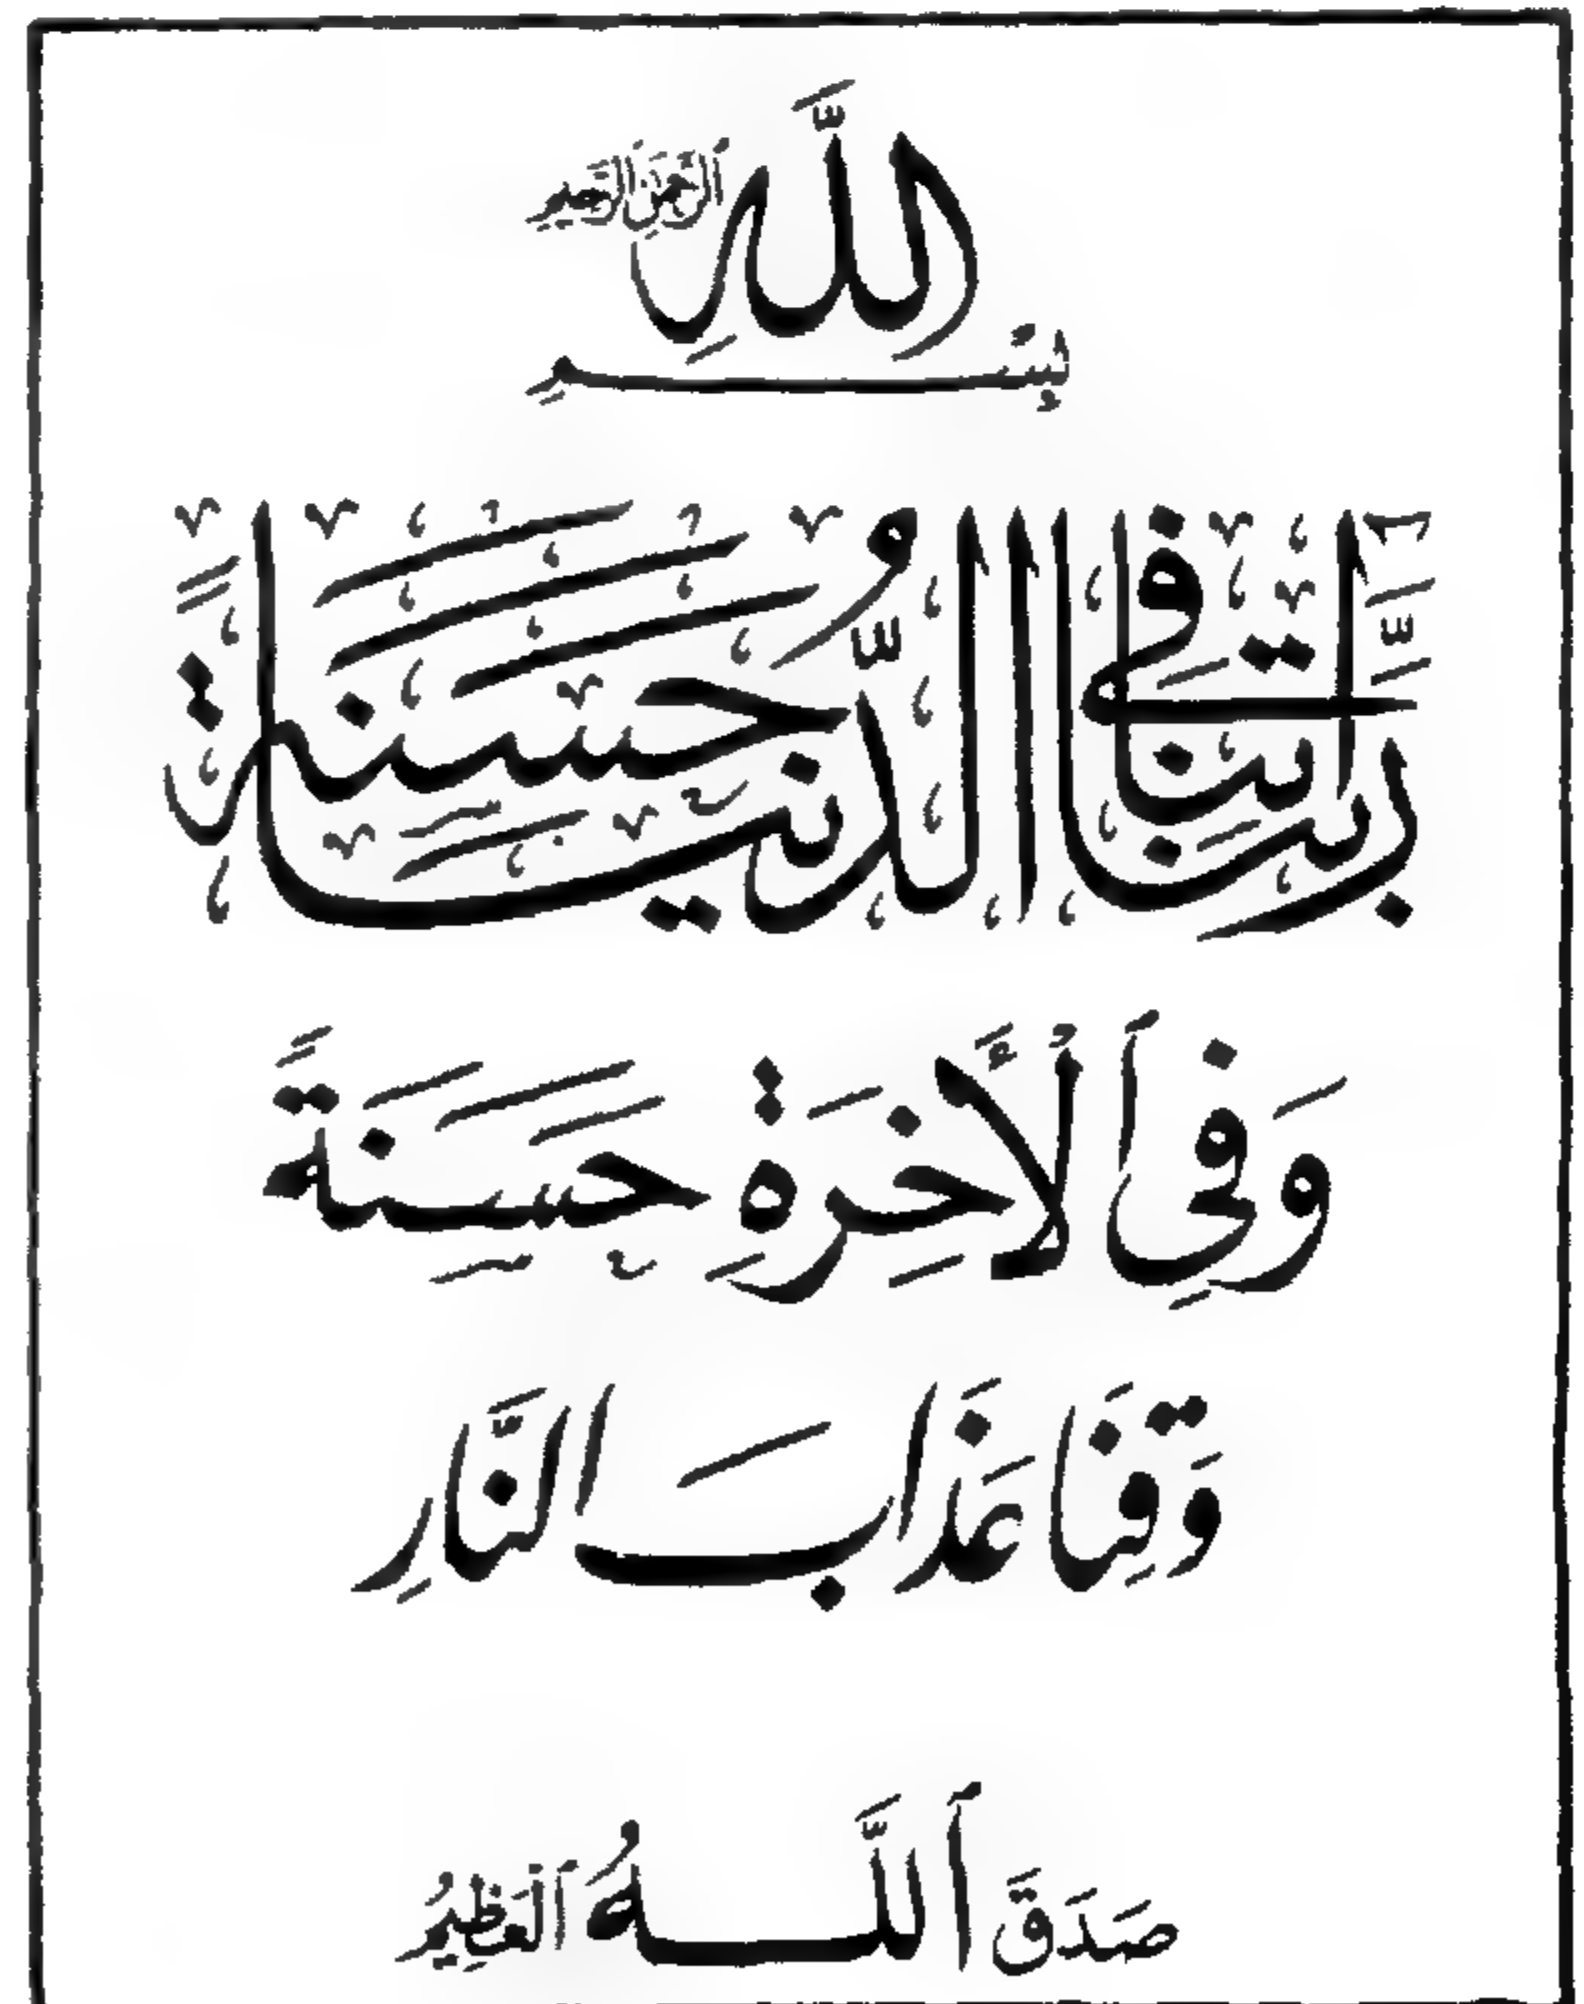 بِسْمِ اللَّهِ الرَّحْمَنِ الرَّحِيمِ
رَبَّنَا آتِنَا فِي الدُّنْيَا حَسَنَةً
وَفِي ٱلْأَخِرَةِ حَسَنَةً
وَقِنَا عَذَابَ النَّارِ
صَدَقَ اللَّهُ الْعَظِيمُ